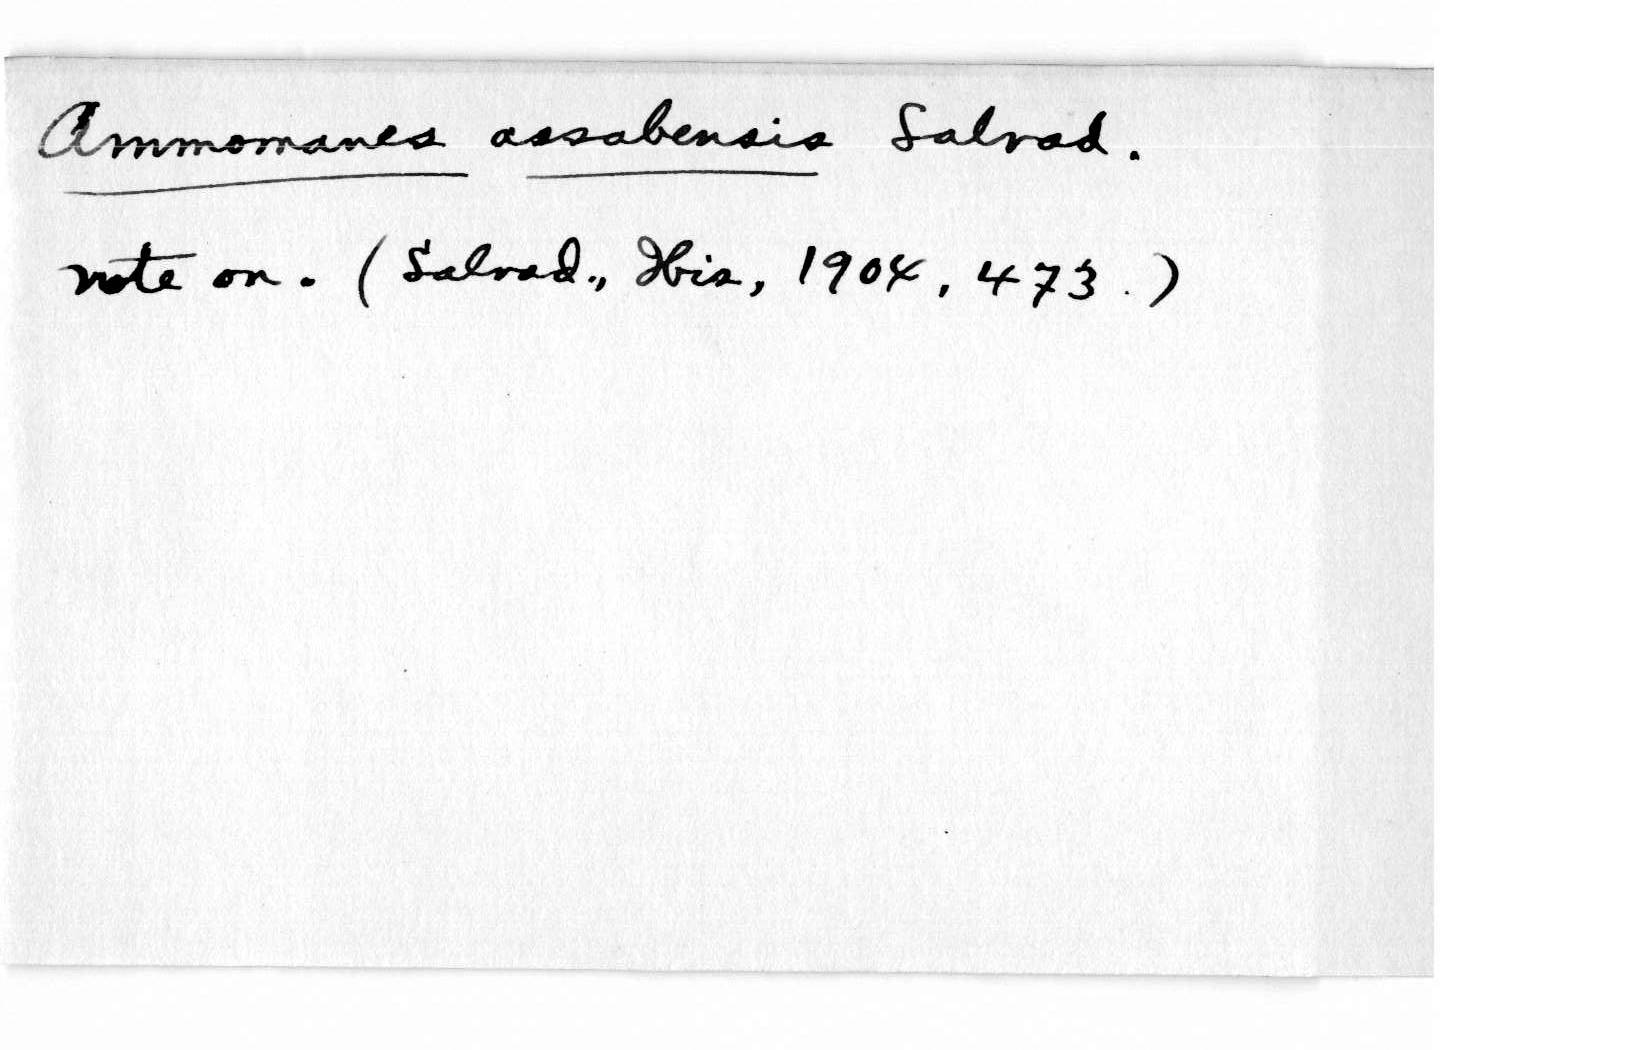 Ammomanes assabensis Salvad.
note on. (Salvad., Ibis, 1904, 473.)